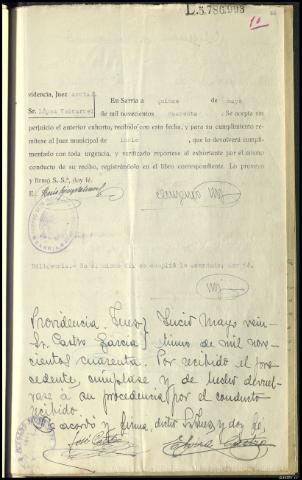 L.3.786.993
videncia, Juez
Sr. López Valcarcel
En Sarria a quince de mayo
de mil novecientos cuarenta . Se acepta sin
perjuicio el anterior exhorto, recibido con esta fecha, y para su cumplimiento re-
mítese al Juez municipal de Incio , que lo devolverá cumpli-
mentado con toda urgencia, y verificado repórtese al exhortante por el mismo
conducto de su recibo, registrándolo en el libro correspondiente. Lo proveyó
y firmó S. S.ª, doy fé.
E.
Diligencia.- En el mismo día se cumplió lo acordado, doy fé.
Providencia Juez } Incio Mayo vein-
Sr. Castro Garcia } tiuno de mil nov-
cientos cuarenta. Por recibido el pre-
cedente, cúmplase y de hecho devuel-
vase á su procedencia por el conducto
recibido.
Lo acordó y firma, dicho Sr Juez y doy fé,
José Castro